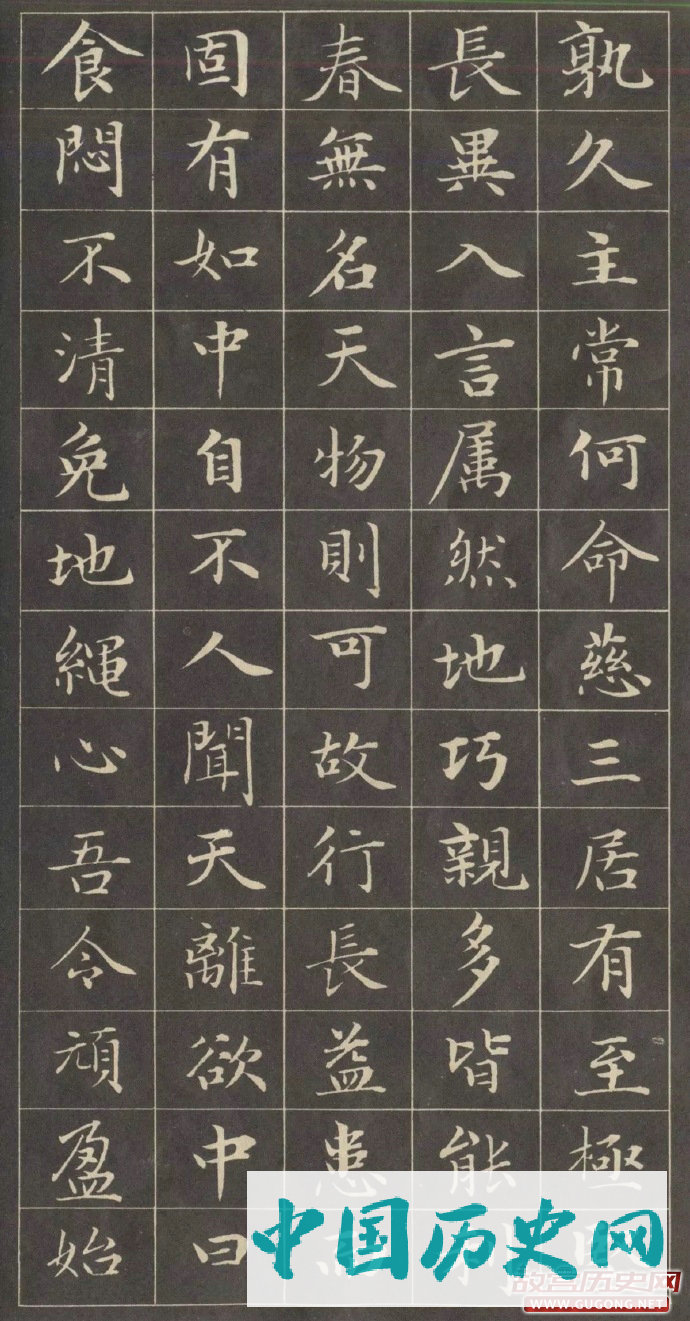 孰久主常何命慈三居有至極
長異入言属然地巧親多皆能
春無名天物則可故行長益患
固有如中自不人聞天離欲中曰
食悶不清免地繩心吾令頑盈始
中国历史网
故宫历史网
WWW.GUGONG.NET